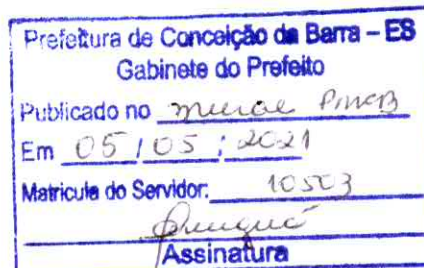 Prefeitura de Conceição da Barra – ES
Gabinete do Prefeito
Publicado no mural PMCB
Em 05/05/2021
Matricula do Servidor: 10503
Assinatura